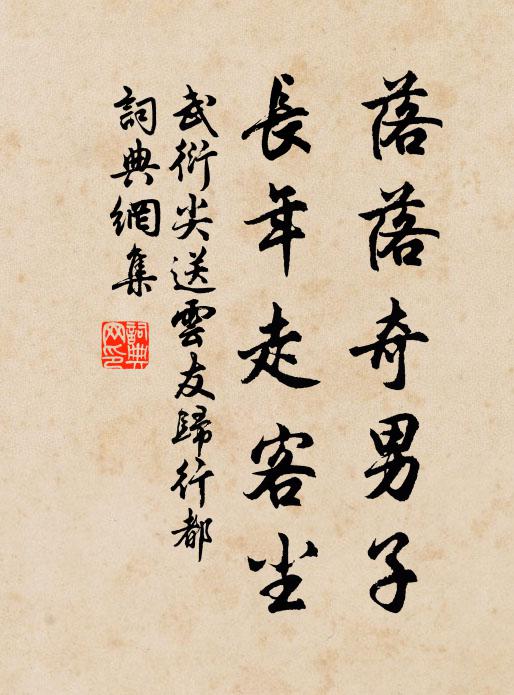 落落奇男子
長年走客尘
武衍尖送雲友歸行都
詞典網集
詞典网印